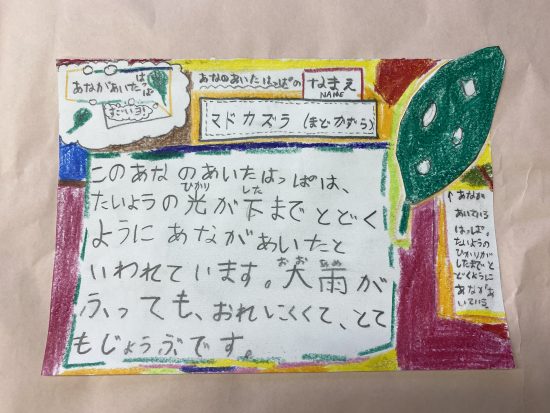 あながあいた
はっぱ
すごいヨ!
あなのあいたはっぱの
なまえ
NAME
マドカズラ(まどかずら)
このあなのあいたはっぱは、
たいようの光が下までとどく
ひかり
した
ようにあながあいたと
いわれています。大雨が
おお
あめ
ふっても、おれにくくて、とて
もじょうぶです。
↑あなが
あいている
はっぱ。
たいようの
ひかりが
したまでと
どくように
あながあ
いている